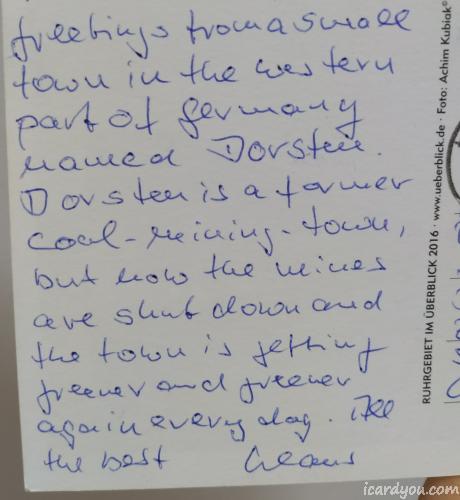 greetings from a small
town in the western
part of Germany
named Dorsten.
Dorsten is a former
coal-mining-town,
but now the mines
are shut down and
the town is getting
greener and greener
again every day. All
the best Claus
RUHRGEBIET IM ÜBERBLICK 2016 · www.ueberblick.de · Foto: Achim Kubiak®
icardyou.com